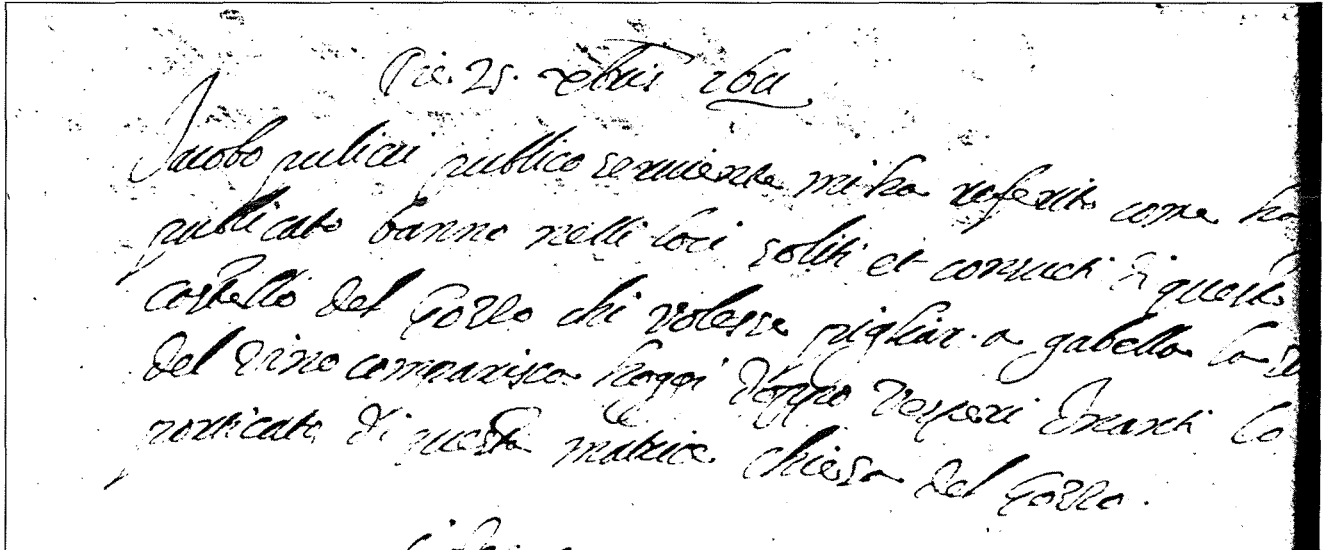 Die. 25. xbris 1611
Jacobo publico serviente mi ha referito come ha
publicato banno nelli loci soliti et consueti di questo
castello del Pozzo chi volesse pigliar a gabella la
del vino comparisca hoggi doppo vesperi inanti lo
porticato di questa matrice chiesa del Pozzo.